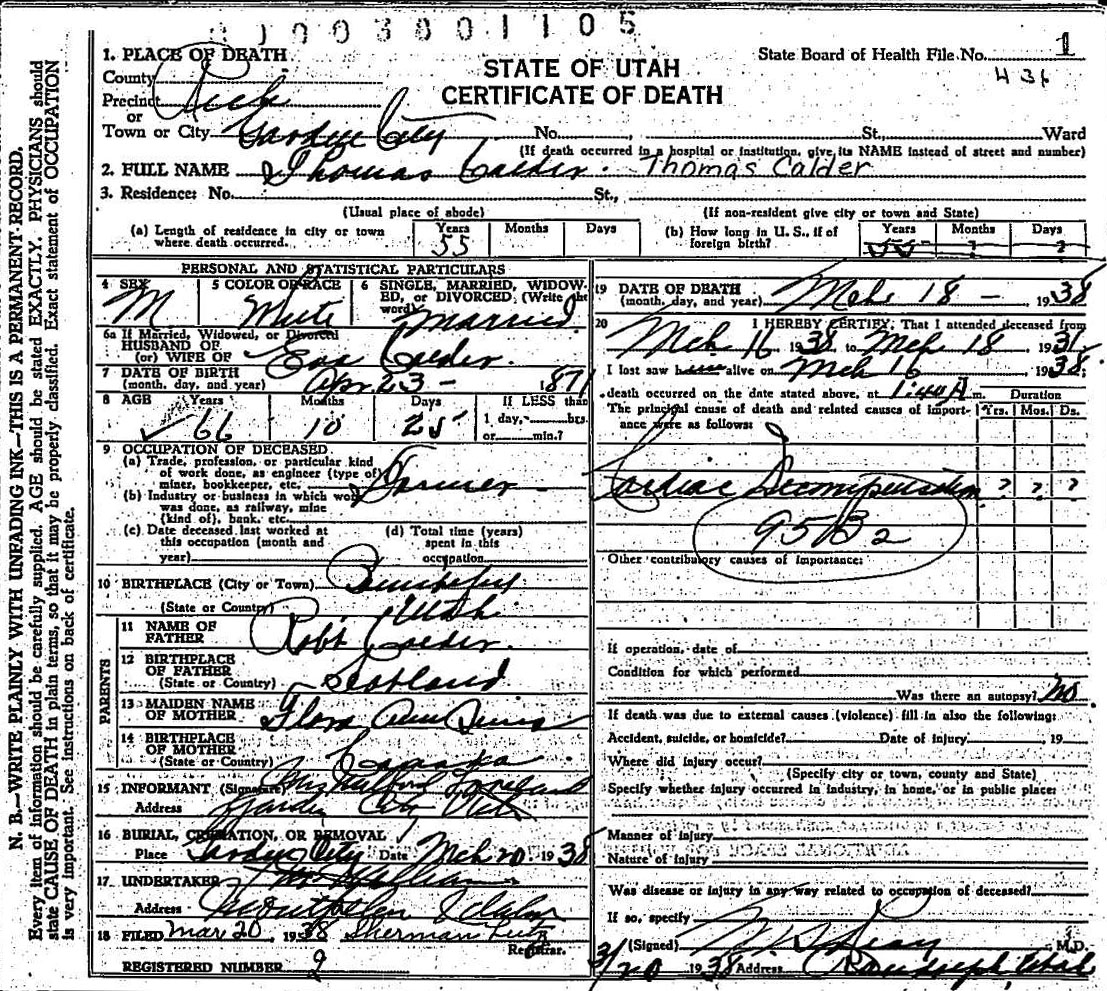 1003801105
1. PLACE OF DEATH
State Board of Health File No. 1
436
STATE OF UTAH
CERTIFICATE OF DEATH
County
Precinct Rich
or
Town or City Garden City No. St., Ward
(If death occurred in a hospital or institution, give its NAME instead of street and number)
2. FULL NAME Thomas Calder. Thomas Calder
3. Residence: No. St.,
(Usual place of abode) (If non-resident give city or town and State)
(a) Length of residence in city or town where death occurred. Years 55 Months Days
(b) How long in U. S., if of foreign birth? Years 55 Months ? Days ?
PERSONAL AND STATISTICAL PARTICULARS
4 SEX M
5 COLOR OR RACE White
6 SINGLE, MARRIED, WIDOWED, or DIVORCED, (Write the word) Married
6a If Married, Widowed, or Divorced
HUSBAND OF
(or) WIFE OF Calder.
7 DATE OF BIRTH
(month, day, and year) Apr 23 - 1871
8 AGE Years 66 Months 10 Days 25 If LESS than
1 day, hrs.
or min.?
9 OCCUPATION OF DECEASED
(a) Trade, profession, or particular kind
of work done, as engineer (type of)
miner, bookkeeper, etc. Farmer
(b) Industry or business in which work
was done, as railway, mine
(kind of), bank, etc.
(c) Date deceased last worked at
this occupation (month and
year)
(d) Total time (years)
spent in this
occupation
10 BIRTHPLACE (City or Town) Bountiful
(State or Country) Utah
PARENTS
11 NAME OF
FATHER Robt Calder.
12 BIRTHPLACE
OF FATHER
(State or Country) Scotland
13 MAIDEN NAME
OF MOTHER Flora Ann
14 BIRTHPLACE
OF MOTHER
(State or Country) Canada
15 INFORMANT (Signature) Mrs Loveland
Address Garden City Utah
16 BURIAL, CREMATION, OR REMOVAL
Place Garden City Date Mch 20 1938
17 UNDERTAKER
Address Montpelier Idaho
18 FILED Mar 20, 1938 Sherman
Registrar.
REGISTERED NUMBER 9
19 DATE OF DEATH
(month, day, and year) Mch 18 - 1938
20 I HEREBY CERTIFY, That I attended deceased from
Mch 16 1938 to Mch 18, 1938
I last saw him alive on Mch 16, 1938;
death occurred on the date stated above, at 1:40 A m.
Duration
The principal cause of death and related causes of importance were as follows: Yrs. Mos. Ds.
Cardiac Decompensation ? ? ?
95B2
Other contributory causes of importance:
If operation, date of
Condition for which performed
Was there an autopsy? No.
If death was due to external causes (violence) fill in also the following:
Accident, suicide, or homicide? Date of injury, 19
Where did injury occur?
(Specify city or town, county and State)
Specify whether injury occurred in industry, in home, or in public place:
Manner of injury
Nature of injury
Was disease or injury in any way related to occupation of deceased?
If so, specify
(Signed) M.D.
3/20 1938 Address Randolph, Utah
N. B.—WRITE PLAINLY WITH UNFADING INK—THIS IS A PERMANENT RECORD.
Every item of information should be carefully supplied. AGE should be stated EXACTLY. PHYSICIANS should
state CAUSE OF DEATH in plain terms, so that it may be properly classified. Exact statement of OCCUPATION
is very important. See instructions on back of certificate.